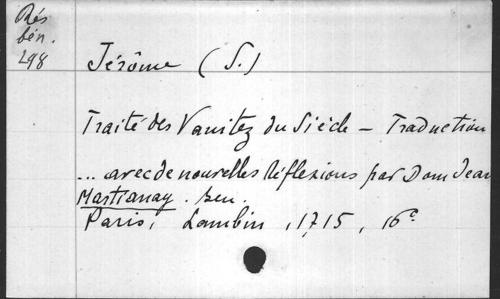 Rés
bén.
298
Jérôme (S.)
Traité des Vanitez du Siècle - Traduction
... avec de nouvelles Réflexions par Dom Jean
Martianay. ben.
Paris, Lambin, 1715, 16°